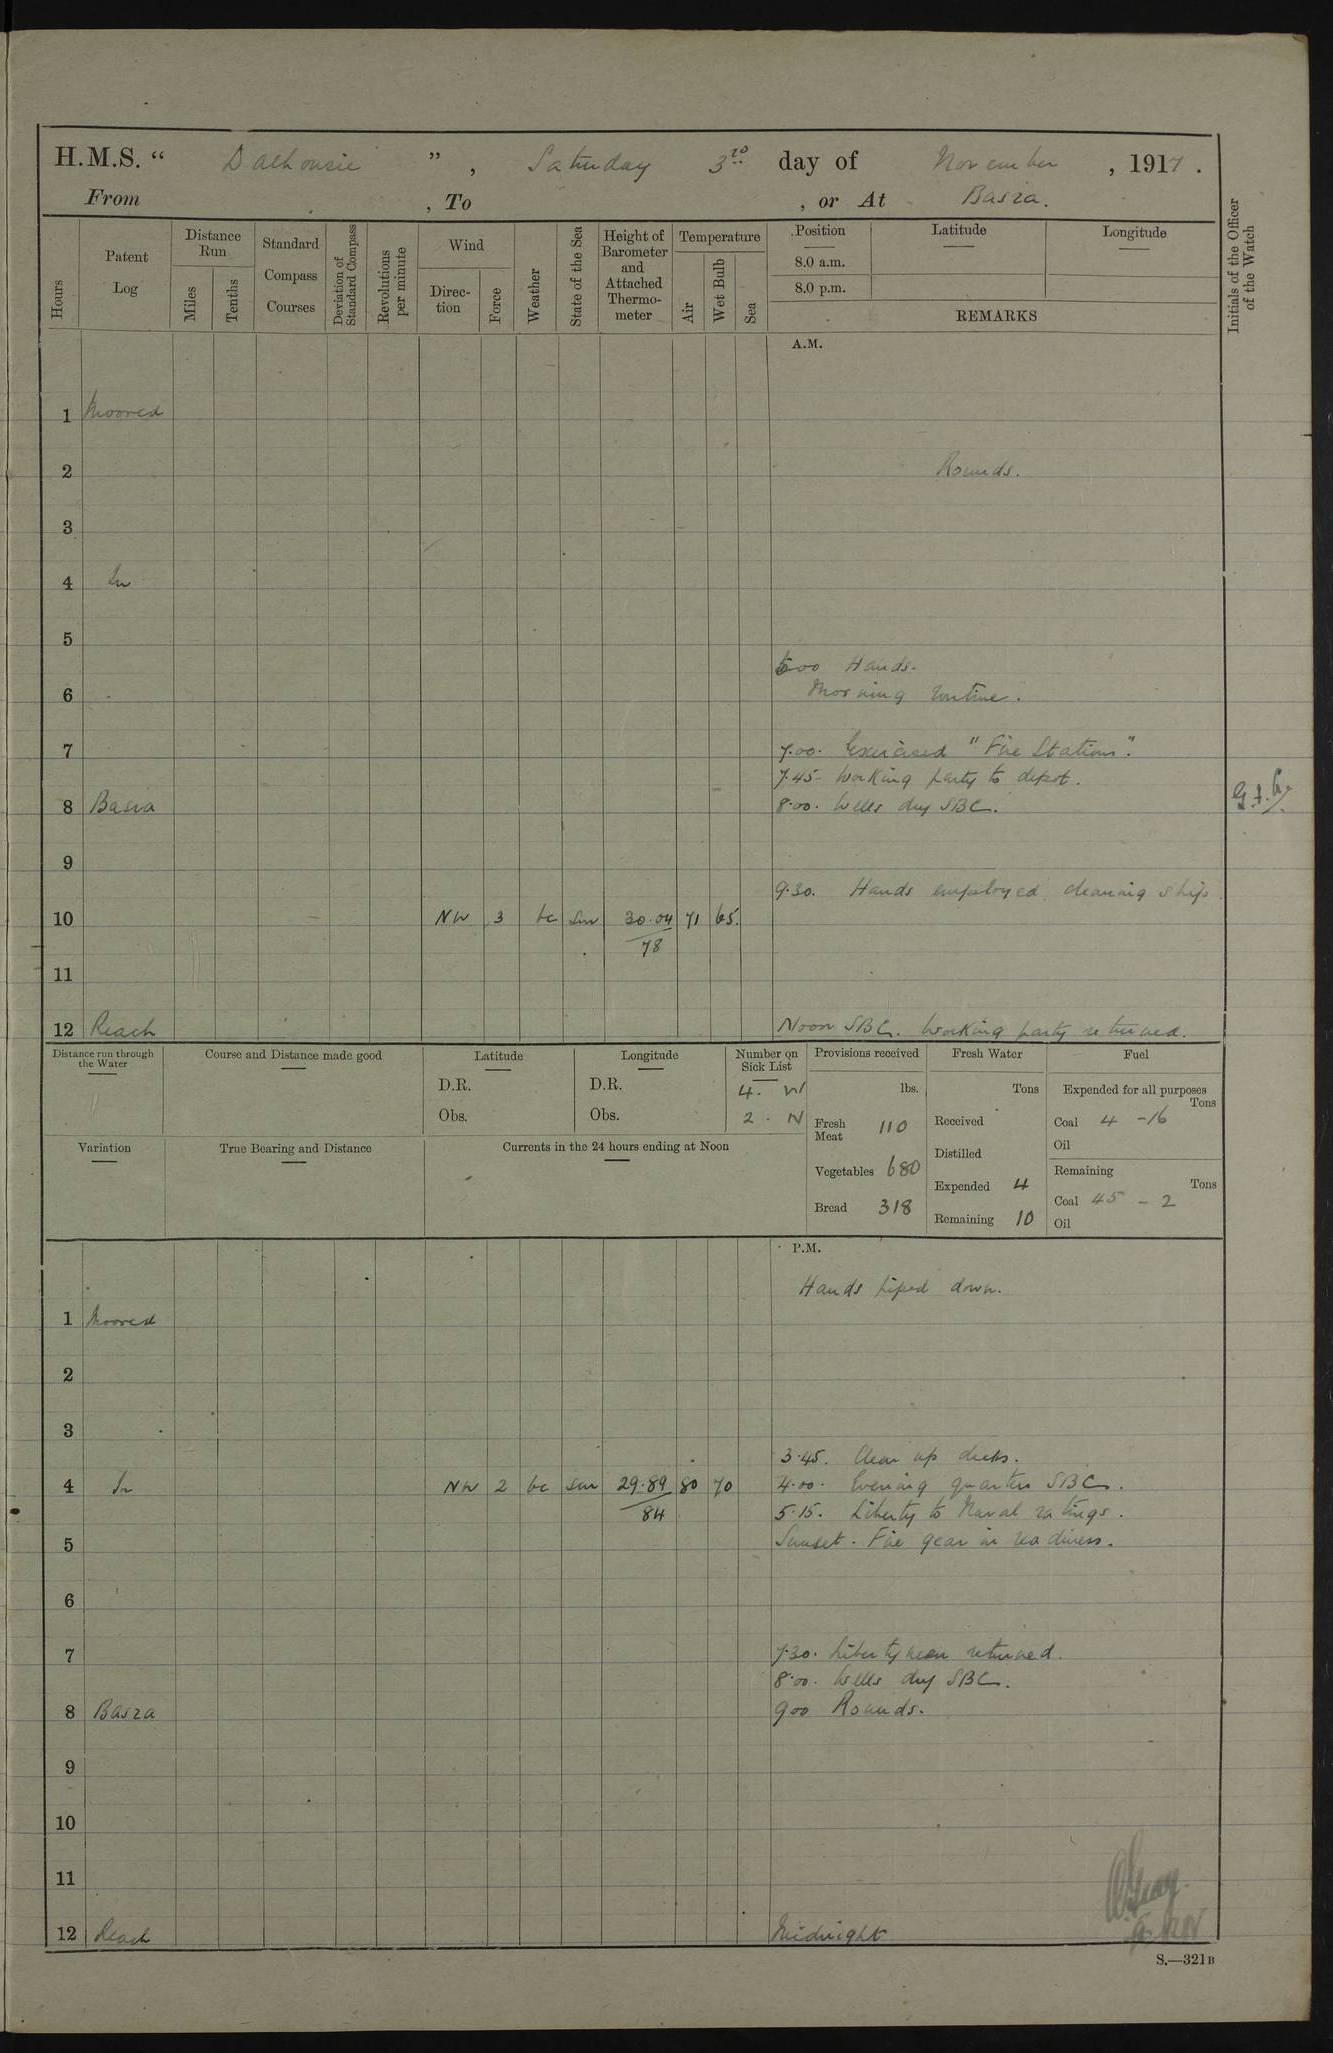 H.M.S. “ Dalhousie ” , Saturday 3rd day of November , 1917 .
From , To , or At Basra.
Hours
Patent Log
Distance Run
Miles
Tenths
Standard Compass Courses
Deviation of Standard Compass
Revolutions per minute
Wind
Direction
Force
Weather
State of the Sea
Height of Barometer and Attached Thermometer
Temperature
Air
Wet Bulb
Sea
Position
8.0 a.m.
8.0 p.m.
Latitude
Longitude
REMARKS
Initials of the Officer of the Watch
A.M.
1 Moored
2 Rounds.
3
4 In
5
500 Hands.
6 Morning routine.
7 7.00. Exercised "Fire Stations".
7.45- Working party to depot.
8 Basra 8.00. Wells dry SBC.
9
9.30. Hands employed cleaning ship
10 NW 3 bc sm 30.04 71 65.
78
11
12 Reach Noon SBC. Working party returned.
Distance run through the Water
Course and Distance made good
Latitude
D.R.
Obs.
Longitude
D.R.
Obs.
Number on Sick List
4. W
2. N
Provisions received
lbs.
Fresh Meat 110
Vegetables 680
Bread 318
Fresh Water
Tons
Received
Distilled
Expended 4
Remaining 10
Fuel
Expended for all purposes
Tons
Coal 4 - 16
Oil
Remaining
Tons
Coal 45 - 2
Oil
Variation
True Bearing and Distance
Currents in the 24 hours ending at Noon
P.M.
Hands piped down.
1 Moored
2
3
3.45. Clear up decks.
4 In NW 2 bc sm 29.89 80 70 4.00. Evening quarters SBC.
84 5.15. Liberty to Naval ratings.
5 Sunset. Fire gear in readiness.
6
7 7.30. Liberty men returned.
8.00. Wells dry SBC.
8 Basra 900 Rounds.
9
10
11
12 Reach Midnight
S.—321B